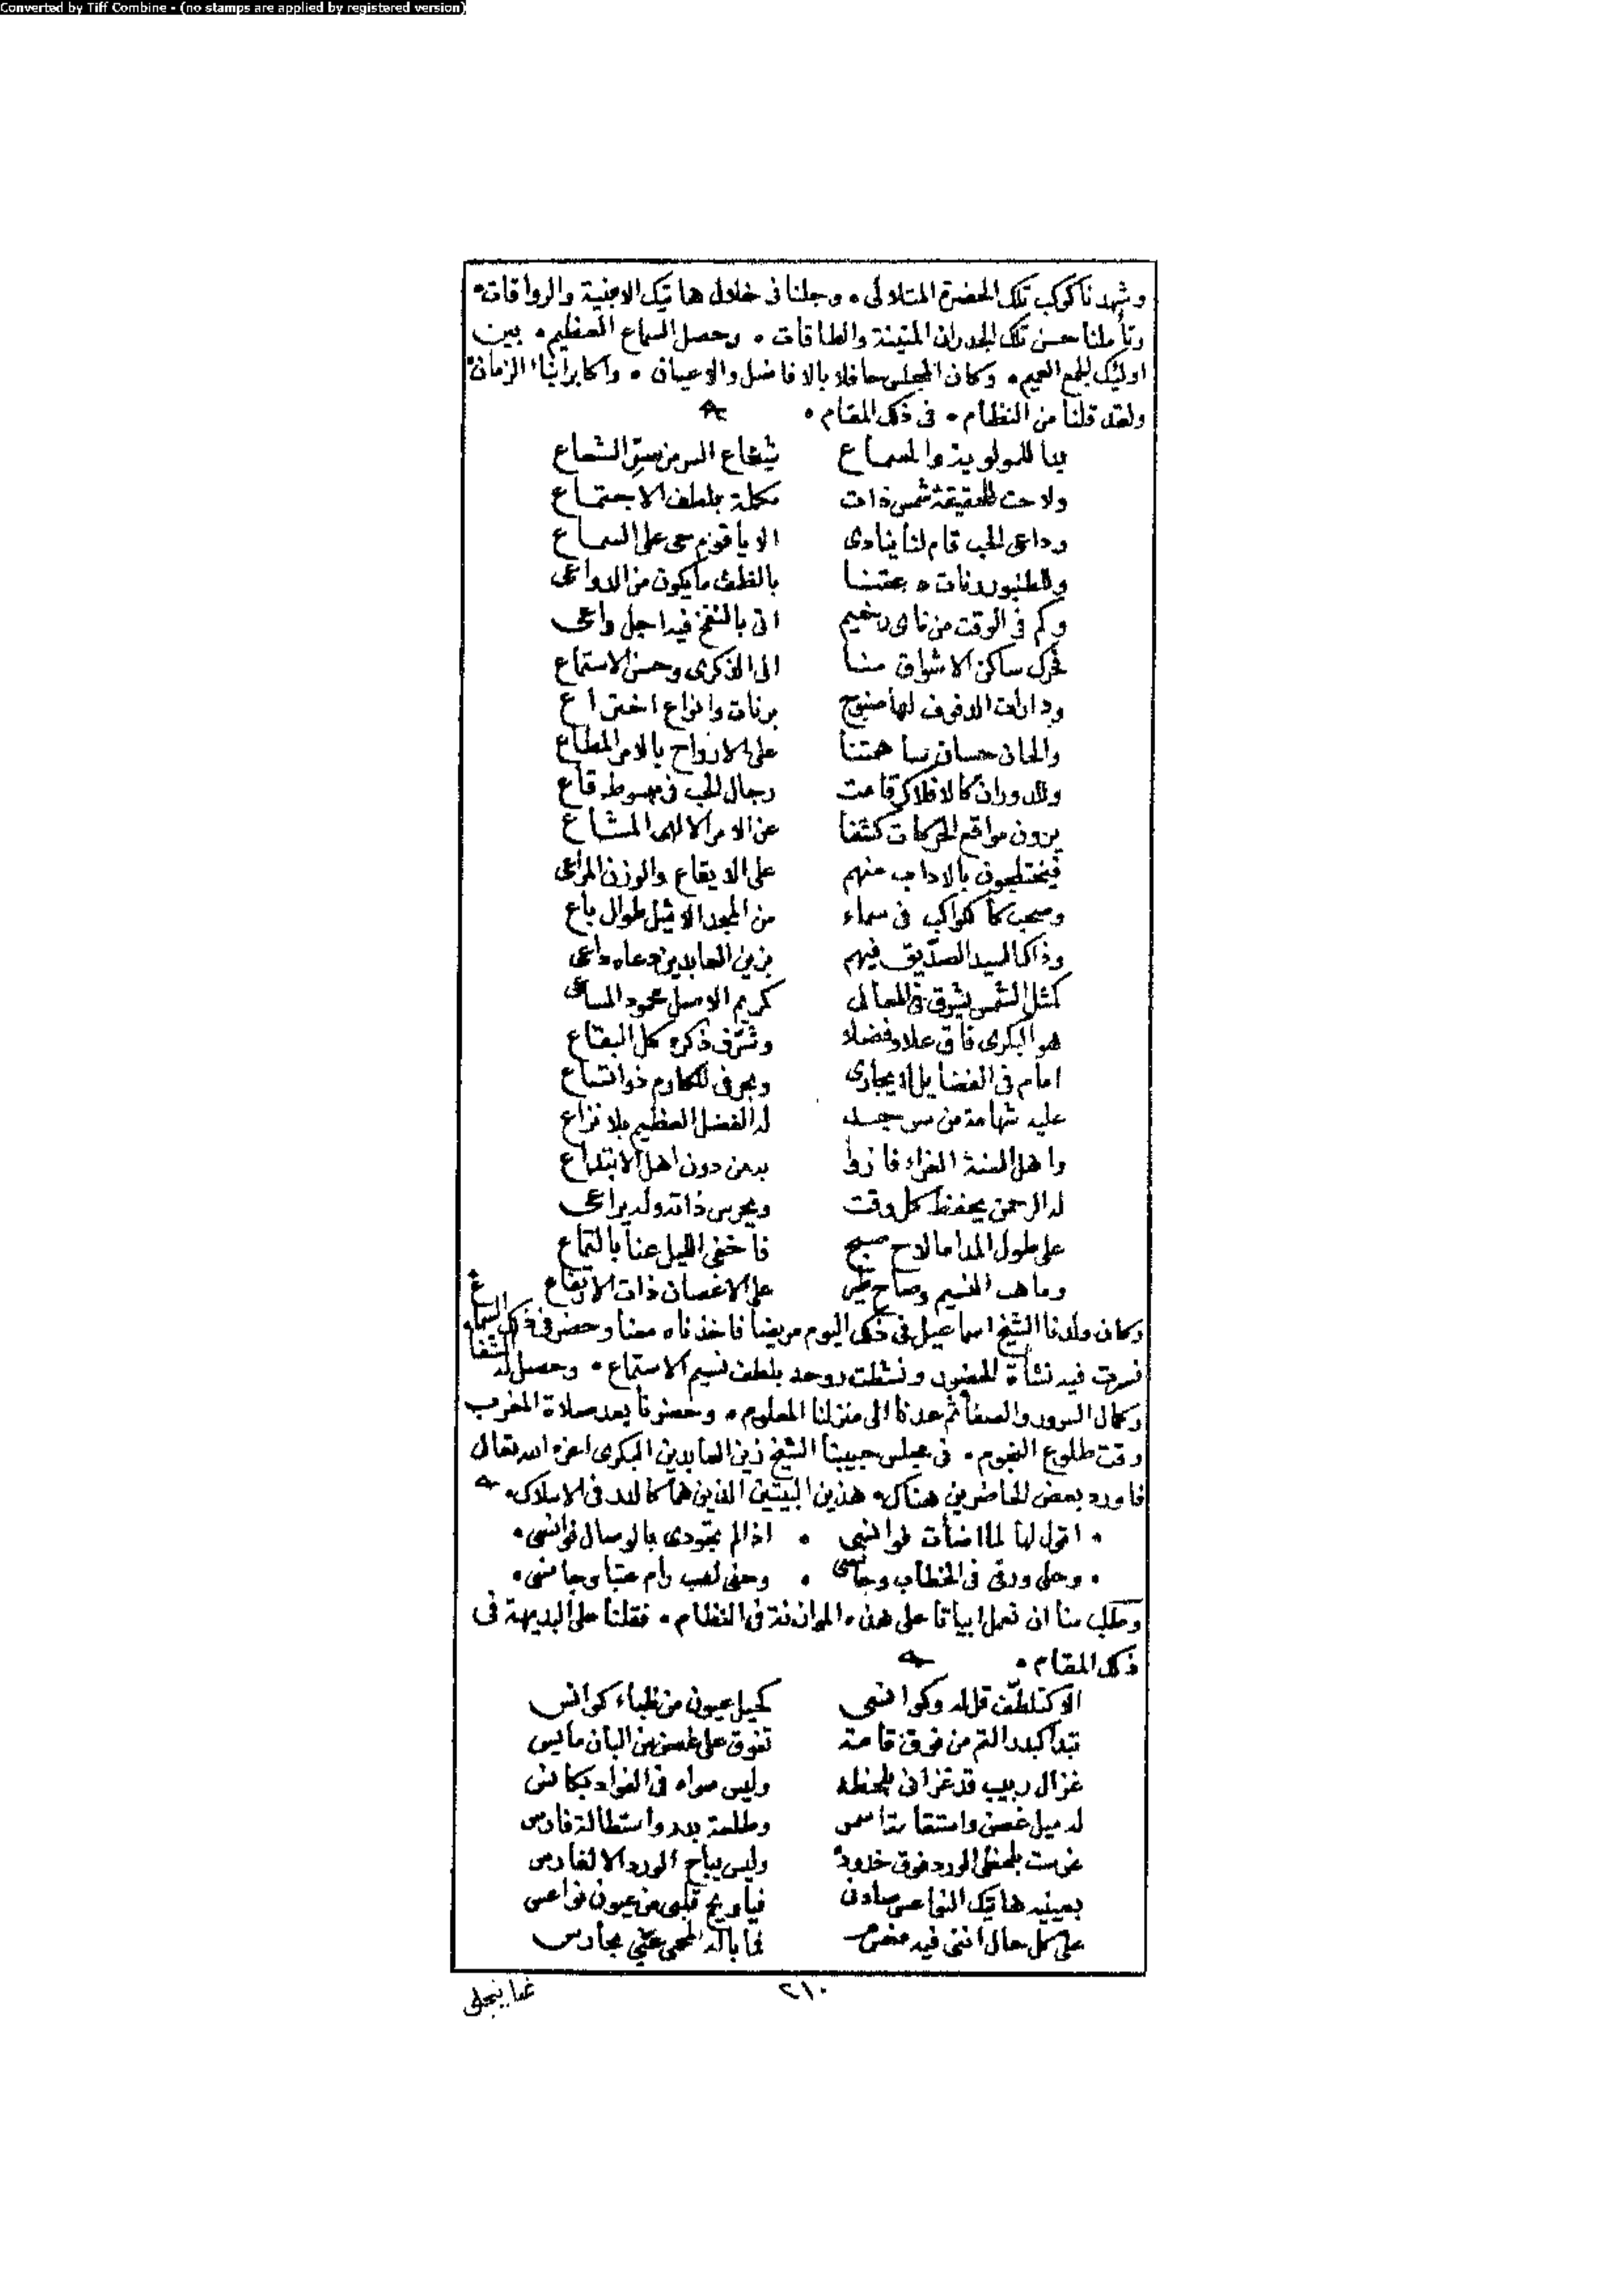 Converted by Tiff Combine - (no stamps are applied by registered version)
وشهدنا كوكب تلك الحضرة المتلالى • وجلنا فى خلال هاتيك الابنية والرواقات •
وتأملنا حسن تلك الجدران المتينة والطاقات • وحصل السماع العظيم • بين
اوليك الجمع العميم • وكان المجلس حافلا بالافاضل والاعيان • واكابر ابناء الزمان •
ولقد قلنا من النظام • فى ذلك المقام •
بدا للمولوية والسماع شعاع السر من الشعاع
ولاحت للحقيقة شمس ذات مكملة بلطف الاجتماع
وداعى الحب قام لنا ينادى الا يا قوم حى على السماع
وللطنبور رنات دعتنا بالطف ما يكون من الدواعى
وكم فى الوقت من ناى رخيم اتى بالنفخ فيه اجل داعى
فحرك ساكن الاشواق منا الى الذكرى وحسن الاستماع
ودارات الدفوف لها صنوج برنات وانواع اختراع
والحان حسان على الارواح بالامر المطاع
وللدوران كالافلاك قامت رجال الحب فى مبسوط قاع
يرون مواقع الحركات كشفا عن الامر الالهى المشاع
فيختلجون بالاداب منهم على الايقاع والوزن المراعى
وصحب كالكواكب فى سماء من المجد الاثيل طوال باع
وذاك السيد الصديق فيهم بزين العابدين دعاه داعى
كمثل الشمس يشرق فى المعالى كريم الاصل محمود المساعى
هو البكرى فاق علا وفضلا وشرف ذكره كل البقاع
امام فى الفضايل لا يجارى وبحر فى المكارم ذو اتساع
عليه شهامة من سر جد له الفضل العظيم بلا نزاع
واهل السنة الغراء فازوا به من دون اهل الابتداع
له الرحمن يحفظ كل وقت ويحرس ذاته وله يراعى
على طول المدا ما لاح صبح فاخفى الليل عنا بالتماع
وما هب النسيم وصاح طير على الاغصان ذات الارتفاع
وكان ولدنا الشيخ اسماعيل فى ذلك اليوم مريضا فاخذناه معنا وحضر فى ذلك السماع
فسرت فيه نشأة ونشطت روحه بلطف نسيم الاستماع • وحصل له الشفا
وكمال السرور والصفا ثم عدنا الى منزلنا المعلوم • وحضرنا بعد صلاة المغرب
وقت طلوع النجوم • فى مجلس حبيبنا الشيخ زين العابدين البكرى اعزه الله تعالى
فاورد بعض الحاضرين هناك • هذين البيتين الذين هما كالدر فى الاسلاك •
• اقول لها لما اضأت فوانسى • اذا لم تجودى بالوصال فوانسى •
• وحلى ورقى فى الخطاب وجانسى • وحنى لصب رام عتبا وجانسى •
وطلب منا ان نعمل ابياتا على هذه الموازنة فى النظام • فقلنا على البديهة فى
ذلك المقام •
الاك تلطف قل له وكوانسى كحيل عيون من ظباء كوانس
تبدا كبدر التم من فوق قامة تفوق على غصن من البان مايس
غزال ربيب قد غزانى بلحظه وليس سواه فى الفواد بكانس
له ميل غصن وطلعة بدر واستطالة فارس
غرست بلحظى الورد فوق خدوده وليس يباح الورد الا لغارس
بعينيه هاتيك النواعس صادنى فيا ويح قلبى من عيون نواعس
على كل حال اننى فيه مغرم فما باله
٢١٠